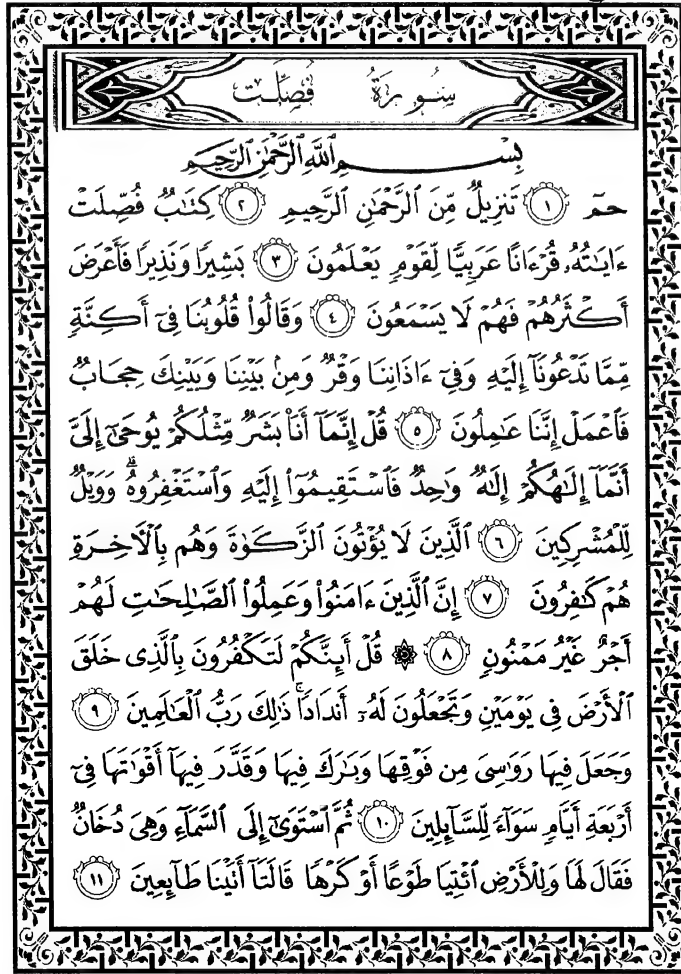 سُورَةُ فُصِّلَت
بِسْمِ ٱللَّهِ ٱلرَّحْمَٰنِ ٱلرَّحِيمِ
حمٓ ١ تَنزِيلٌ مِّنَ ٱلرَّحْمَٰنِ ٱلرَّحِيمِ ٢ كِتَٰبٌ فُصِّلَتْ
ءَايَٰتُهُۥ قُرْءَانًا عَرَبِيًّا لِّقَوْمٍ يَعْلَمُونَ ٣ بَشِيرًا وَنَذِيرًا فَأَعْرَضَ
أَكْثَرُهُمْ فَهُمْ لَا يَسْمَعُونَ ٤ وَقَالُوا۟ قُلُوبُنَا فِىٓ أَكِنَّةٍ
مِّمَّا تَدْعُونَآ إِلَيْهِ وَفِىٓ ءَاذَانِنَا وَقْرٌ وَمِنۢ بَيْنِنَا وَبَيْنِكَ حِجَابٌ
فَٱعْمَلْ إِنَّنَا عَٰمِلُونَ ٥ قُلْ إِنَّمَآ أَنَا۠ بَشَرٌ مِّثْلُكُمْ يُوحَىٰٓ إِلَىَّ
أَنَّمَآ إِلَٰهُكُمْ إِلَٰهٌ وَٰحِدٌ فَٱسْتَقِيمُوٓا۟ إِلَيْهِ وَٱسْتَغْفِرُوهُ ۗ وَوَيْلٌ
لِّلْمُشْرِكِينَ ٦ ٱلَّذِينَ لَا يُؤْتُونَ ٱلزَّكَوٰةَ وَهُم بِٱلْءَاخِرَةِ
هُمْ كَٰفِرُونَ ٧ إِنَّ ٱلَّذِينَ ءَامَنُوا۟ وَعَمِلُوا۟ ٱلصَّٰلِحَٰتِ لَهُمْ
أَجْرٌ غَيْرُ مَمْنُونٍ ٨ ۞ قُلْ أَئِنَّكُمْ لَتَكْفُرُونَ بِٱلَّذِى خَلَقَ
ٱلْأَرْضَ فِى يَوْمَيْنِ وَتَجْعَلُونَ لَهُۥٓ أَندَادًا ۚ ذَٰلِكَ رَبُّ ٱلْعَٰلَمِينَ ٩
وَجَعَلَ فِيهَا رَوَٰسِىَ مِن فَوْقِهَا وَبَٰرَكَ فِيهَا وَقَدَّرَ فِيهَآ أَقْوَٰتَهَا فِىٓ
أَرْبَعَةِ أَيَّامٍ سَوَآءً لِّلسَّآئِلِينَ ١٠ ثُمَّ ٱسْتَوَىٰٓ إِلَى ٱلسَّمَآءِ وَهِىَ دُخَانٌ
فَقَالَ لَهَا وَلِلْأَرْضِ ٱئْتِيَا طَوْعًا أَوْ كَرْهًا قَالَتَآ أَتَيْنَا طَآئِعِينَ ١١